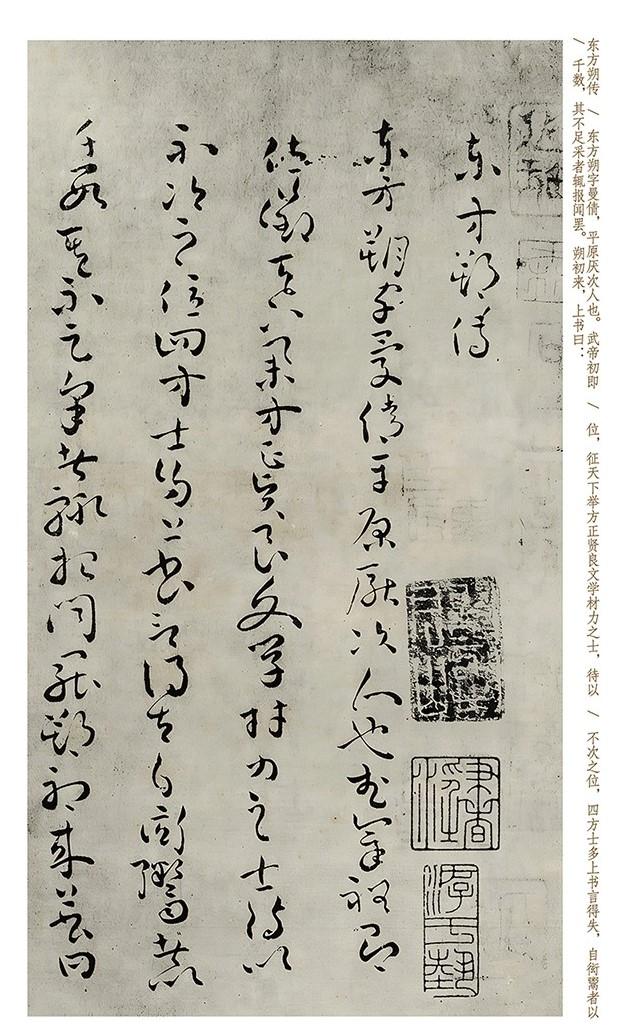 东方朔传 / 东方朔字曼倩，平原厌次人也。武帝初即 / 位，征天下举方正贤良文学材力之士，待以 / 不次之位，四方士多上书言得失，自衒鬻者以
/ 千数，其不足采者辄报闻罢。朔初来，上书曰：
東方朔傳
東方朔字曼倩平原厭次人也武帝初即
位徵天下舉方正賢良文學材力之士待以
不次之位四方士多上書言得失自衒鬻者以
千數其不足采者輒報聞罷朔初來上書曰